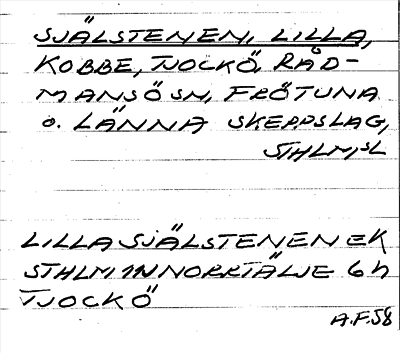 SJÄLSTENEN, LILLA,
KOBBE, TJOCKÖ, RÅD-
MANSÖ SN, FRÖTUNA
o. LÄNNA SKEPPSLAG,
STHLM,SL
LILLA SJÄLSTENEN EK
STHLM 1N NORRTÄLJE 6h
TJOCKÖ
A.F.58